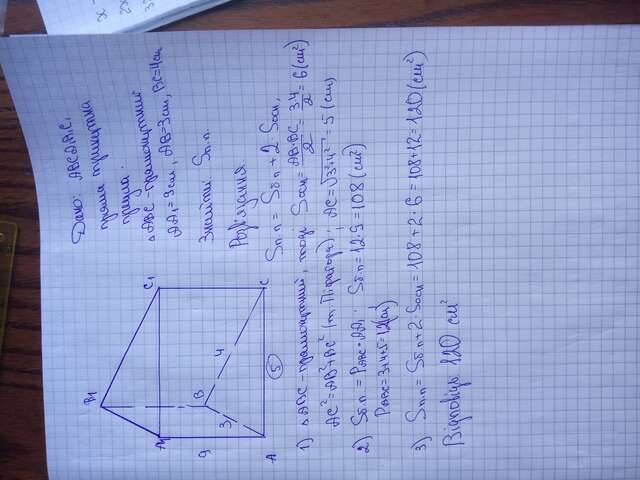 Дано: ABCA₁B₁C₁
пряма трикутна
призма.
△ABC - прямокутний
AA₁ = 9см, AB = 3см, BC = 4см
Знайти: Sп.п.
Розв'язання
Sп.п = Sб.п + 2·Sосн,
1) △ABC - прямокутний, тоді Sосн = AB·BC/2 = 3·4/2 = 6 (см²)
AC² = AB² + BC² (т. Піфагора); AC = √3²+4² = 5 (см)
2) Sб.п = PABC · AA₁. Sб.п = 12·9 = 108 (см²)
PABC = 3+4+5 = 12(см)
3) Sп.п = Sб.п + 2·Sосн = 108 + 2·6 = 108 + 12 = 120 (см²)
Відповідь: 120 см²
B₁
A₁
C₁
B
9
3
4
5
A
C